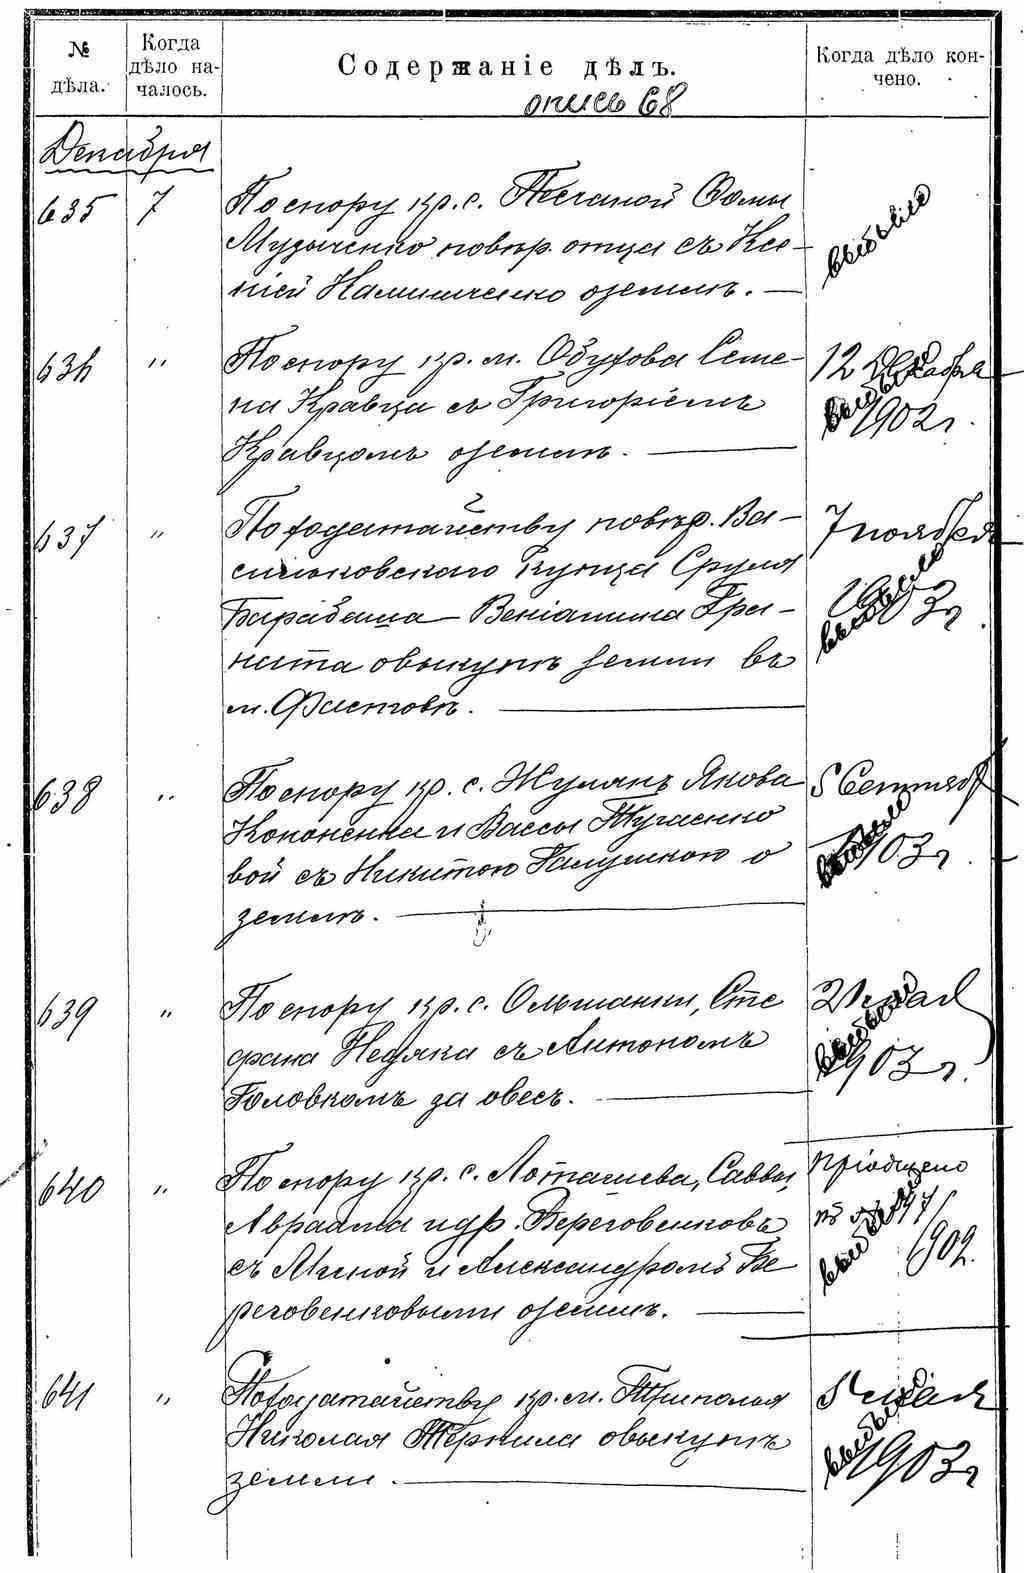 № дѣла.
Когда дѣло на-
чалось.
Содержаніе дѣлъ.
Когда дѣло кон-
чено.
опись 68
Декабря
635 7 По спору кр. с. Песчаной Фомы
Музыченко повѣр. отца съ Ксе-
ніей Калиниченко о землѣ.
выбыло
636 " По спору кр. м. Обухова Семе-
на Кравца съ Григоріемъ
Кравцомъ о землѣ.
12 Декабря
1902 г.
выбыло
637 " По ходатайству повѣр. Ва-
сильковскаго купца Сруля
Барабаша Веніамина Гра-
ната о выкупѣ земли въ
м. Фастовѣ.
7 ноября
1903 г.
выбыло
638 " По спору кр. с. Жулянъ Якова
Кононенка и Вассы Тугаенко
вой съ Никитою Галушкою о
землѣ.
5 Сентяб
1903 г.
выбыло
639 " По спору кр. с. Ольшанки, Сте
фана Недяка съ Антономъ
Головкомъ за овесъ.
2 мая
1903 г.
выбыло
640 " По спору кр. с. Лоташева, Саввы,
Авраама и др. Береговенковъ
съ Миной и Александромъ Бе
реговенковыми о землѣ.
Пріобщено
къ 471
1902.
выбыло
641 " По ходатайству кр. м. Триполья
Николая о выкупѣ
земли.
5 мая
1903 г
выбыло